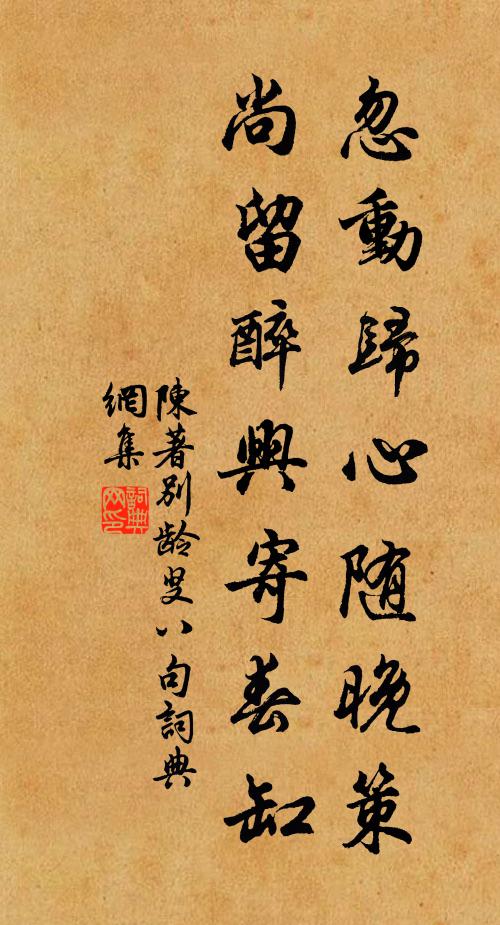 忽動歸心随晚策
尚留醉興寄春缸
陳著別龄叟八句詞典
網集
詞典
网印